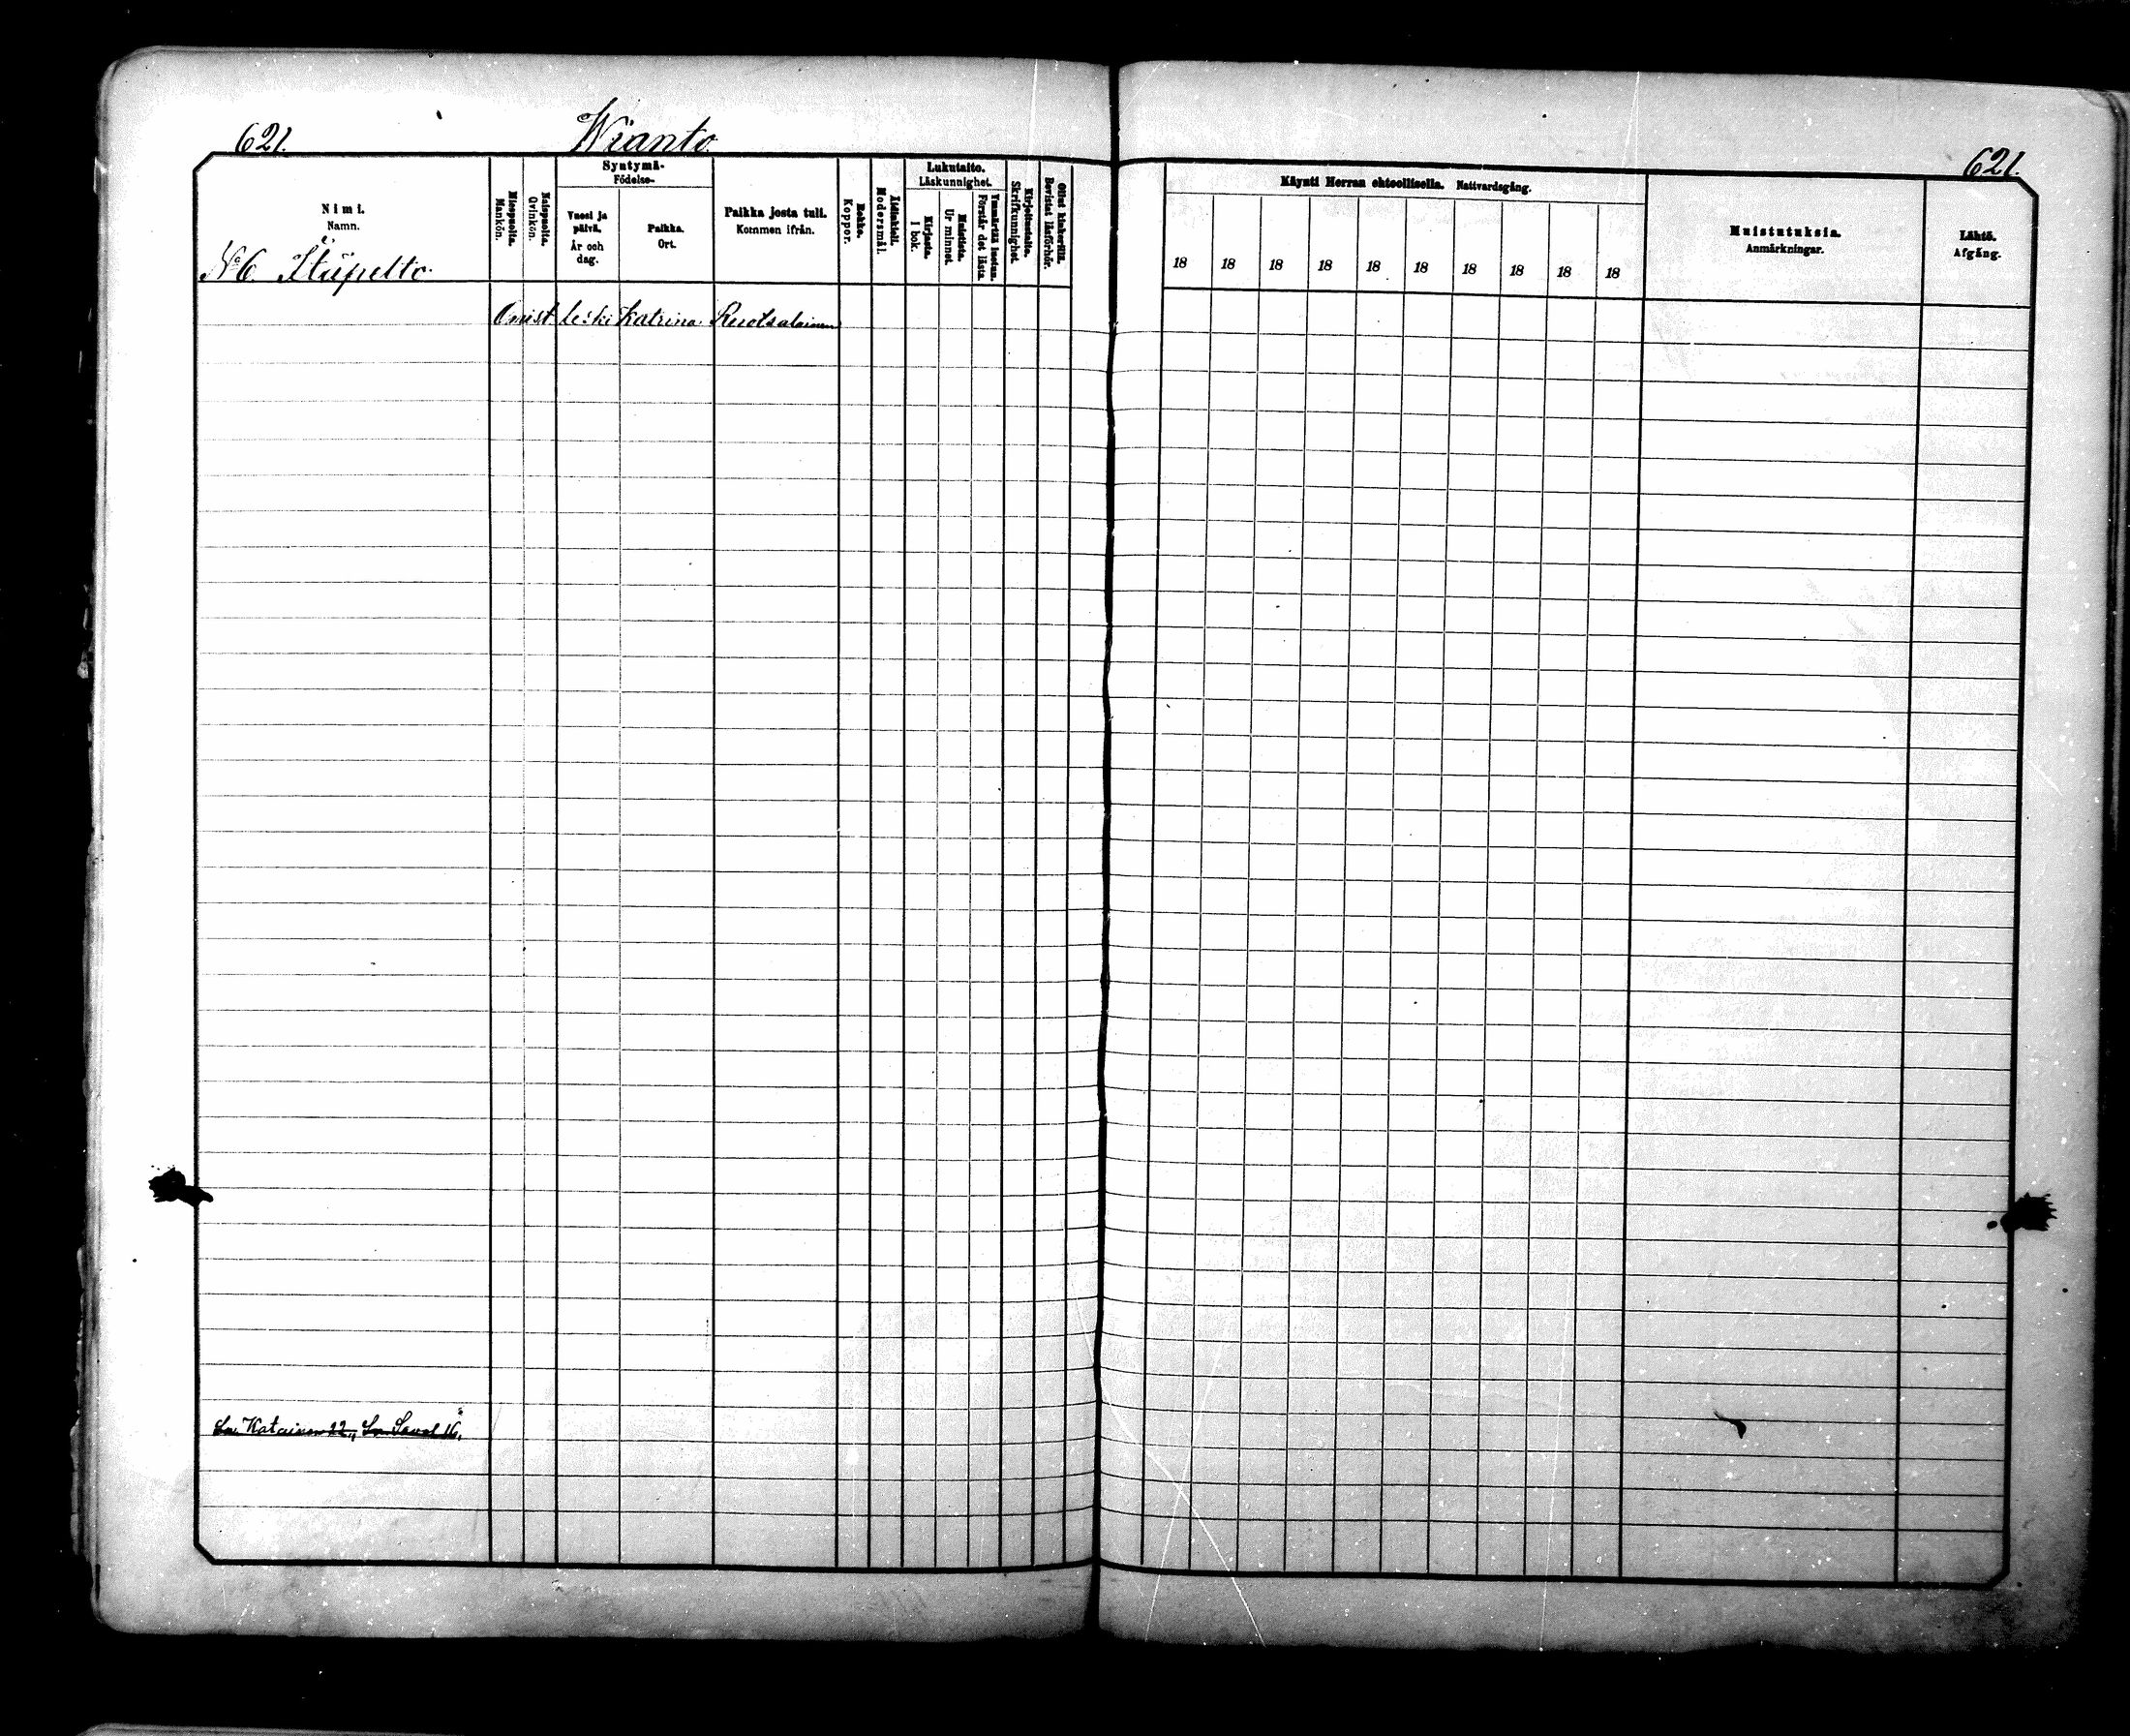 621.
Wianto
621.
Nimi.
Namn.
No 6. Iltüpelto.
Miespuolia.
Mankön.
Naispuolia.
Qvinkön.
Syntymä-
Födelse-
Vuosi ja päivä.
År och dag.
Paikka.
Ort.
Paikka josta tuli.
Kommen ifrån.
Rokko.
Koppor.
Äidinkieli.
Modersmål.
Lukutaito.
Läskunnighet.
Kirjasta.
I bok.
Muistista.
Ur minnet.
Ymmärtää luetun.
Förstår det lästa.
Kirjoitustaito.
Skrifkunnighet.
Ollut kinkerillä.
Bevistat läsförhör.
Käynti Herran ehtoollisella. Nattvardsgång.
18 18 18 18 18 18 18 18 18 18
Muistutuksia.
Anmärkningar.
Lähtö.
Afgång.
Omist leski Katrina Ruotsalainen
Katainen 22., Savol 16.